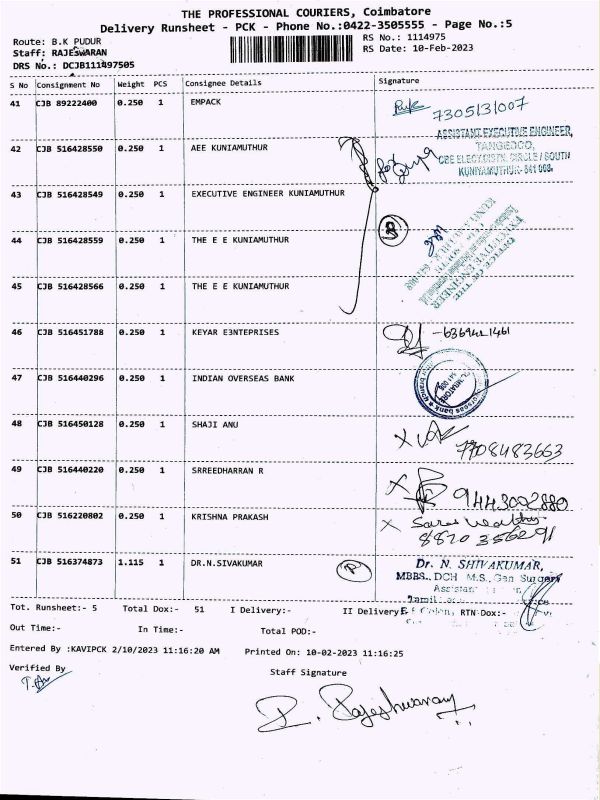 THE PROFESSIONAL COURIERS, Coimbatore
Delivery Runsheet - PCK - Phone No.:0422-3505555 - Page No.:5
Route: B.K PUDUR
Staff: RAJESWARAN
DRS No.: DCJB111497505
RS No.: 1114975
RS Date: 10-Feb-2023
S No Consignment No Weight PCS Consignee Details Signature
41 CJB 89222400 0.250 1 EMPACK
7305131007
ASSISTANT EXECUTIVE ENGINEER,
TANGEDCO,
CBE ELECT.DISTN. CIRCLE / SOUTH
KUNIYAMUTHUR- 641 008.
42 CJB 516428550 0.250 1 AEE KUNIAMUTHUR
for
43 CJB 516428549 0.250 1 EXECUTIVE ENGINEER KUNIAMUTHUR
44 CJB 516428559 0.250 1 THE E E KUNIAMUTHUR
OFFICE OF THE
EXECUTIVE ENGINEER
45 CJB 516428566 0.250 1 THE E E KUNIAMUTHUR
46 CJB 516451788 0.250 1 KEYAR E3NTEPRISES
47 CJB 516440296 0.250 1 INDIAN OVERSEAS BANK
48 CJB 516450128 0.250 1 SHAJI ANU
7708483663
49 CJB 516440220 0.250 1 SRREEDHARRAN R
9443002880
50 CJB 516220802 0.250 1 KRISHNA PRAKASH
51 CJB 516374873 1.115 1 DR.N.SIVAKUMAR
P
Dr. N. SHIVAKUMAR,
MBBS., DCH M.S., Gen Surgery
Assistant
Tot. Runsheet:- 5 Total Dox:- 51 I Delivery:- II Delivery RTN Dox:-
Out Time:- In Time:- Total POD:-
Entered By :KAVIPCK 2/10/2023 11:16:20 AM Printed On: 10-02-2023 11:16:25
Verified By
Staff Signature
R. Rajeshwaran